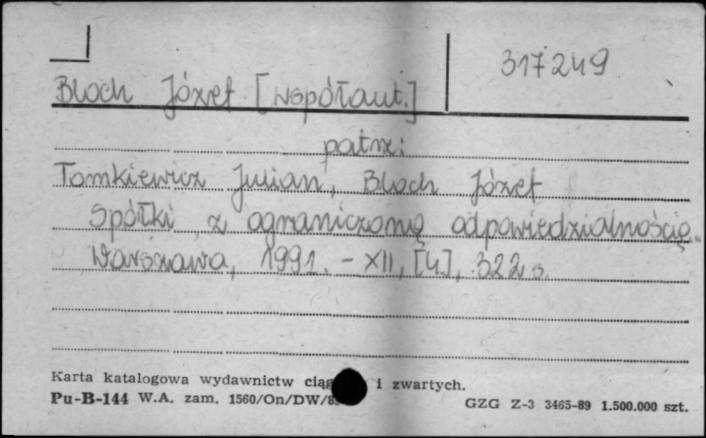 317249
Bloch Józef [współaut.]
patrz:
Tomkiewicz Julian, Bloch Józef
Spółki z ograniczoną odpowiedzialnością.
Warszawa, 1991. - XII, [4], 322 s.
Karta katalogowa wydawnictw i zwartych.
Pu-B-144 W.A. zam. 1560/On/DW/
GZG Z-3 3465-89 1.500.000 szt.